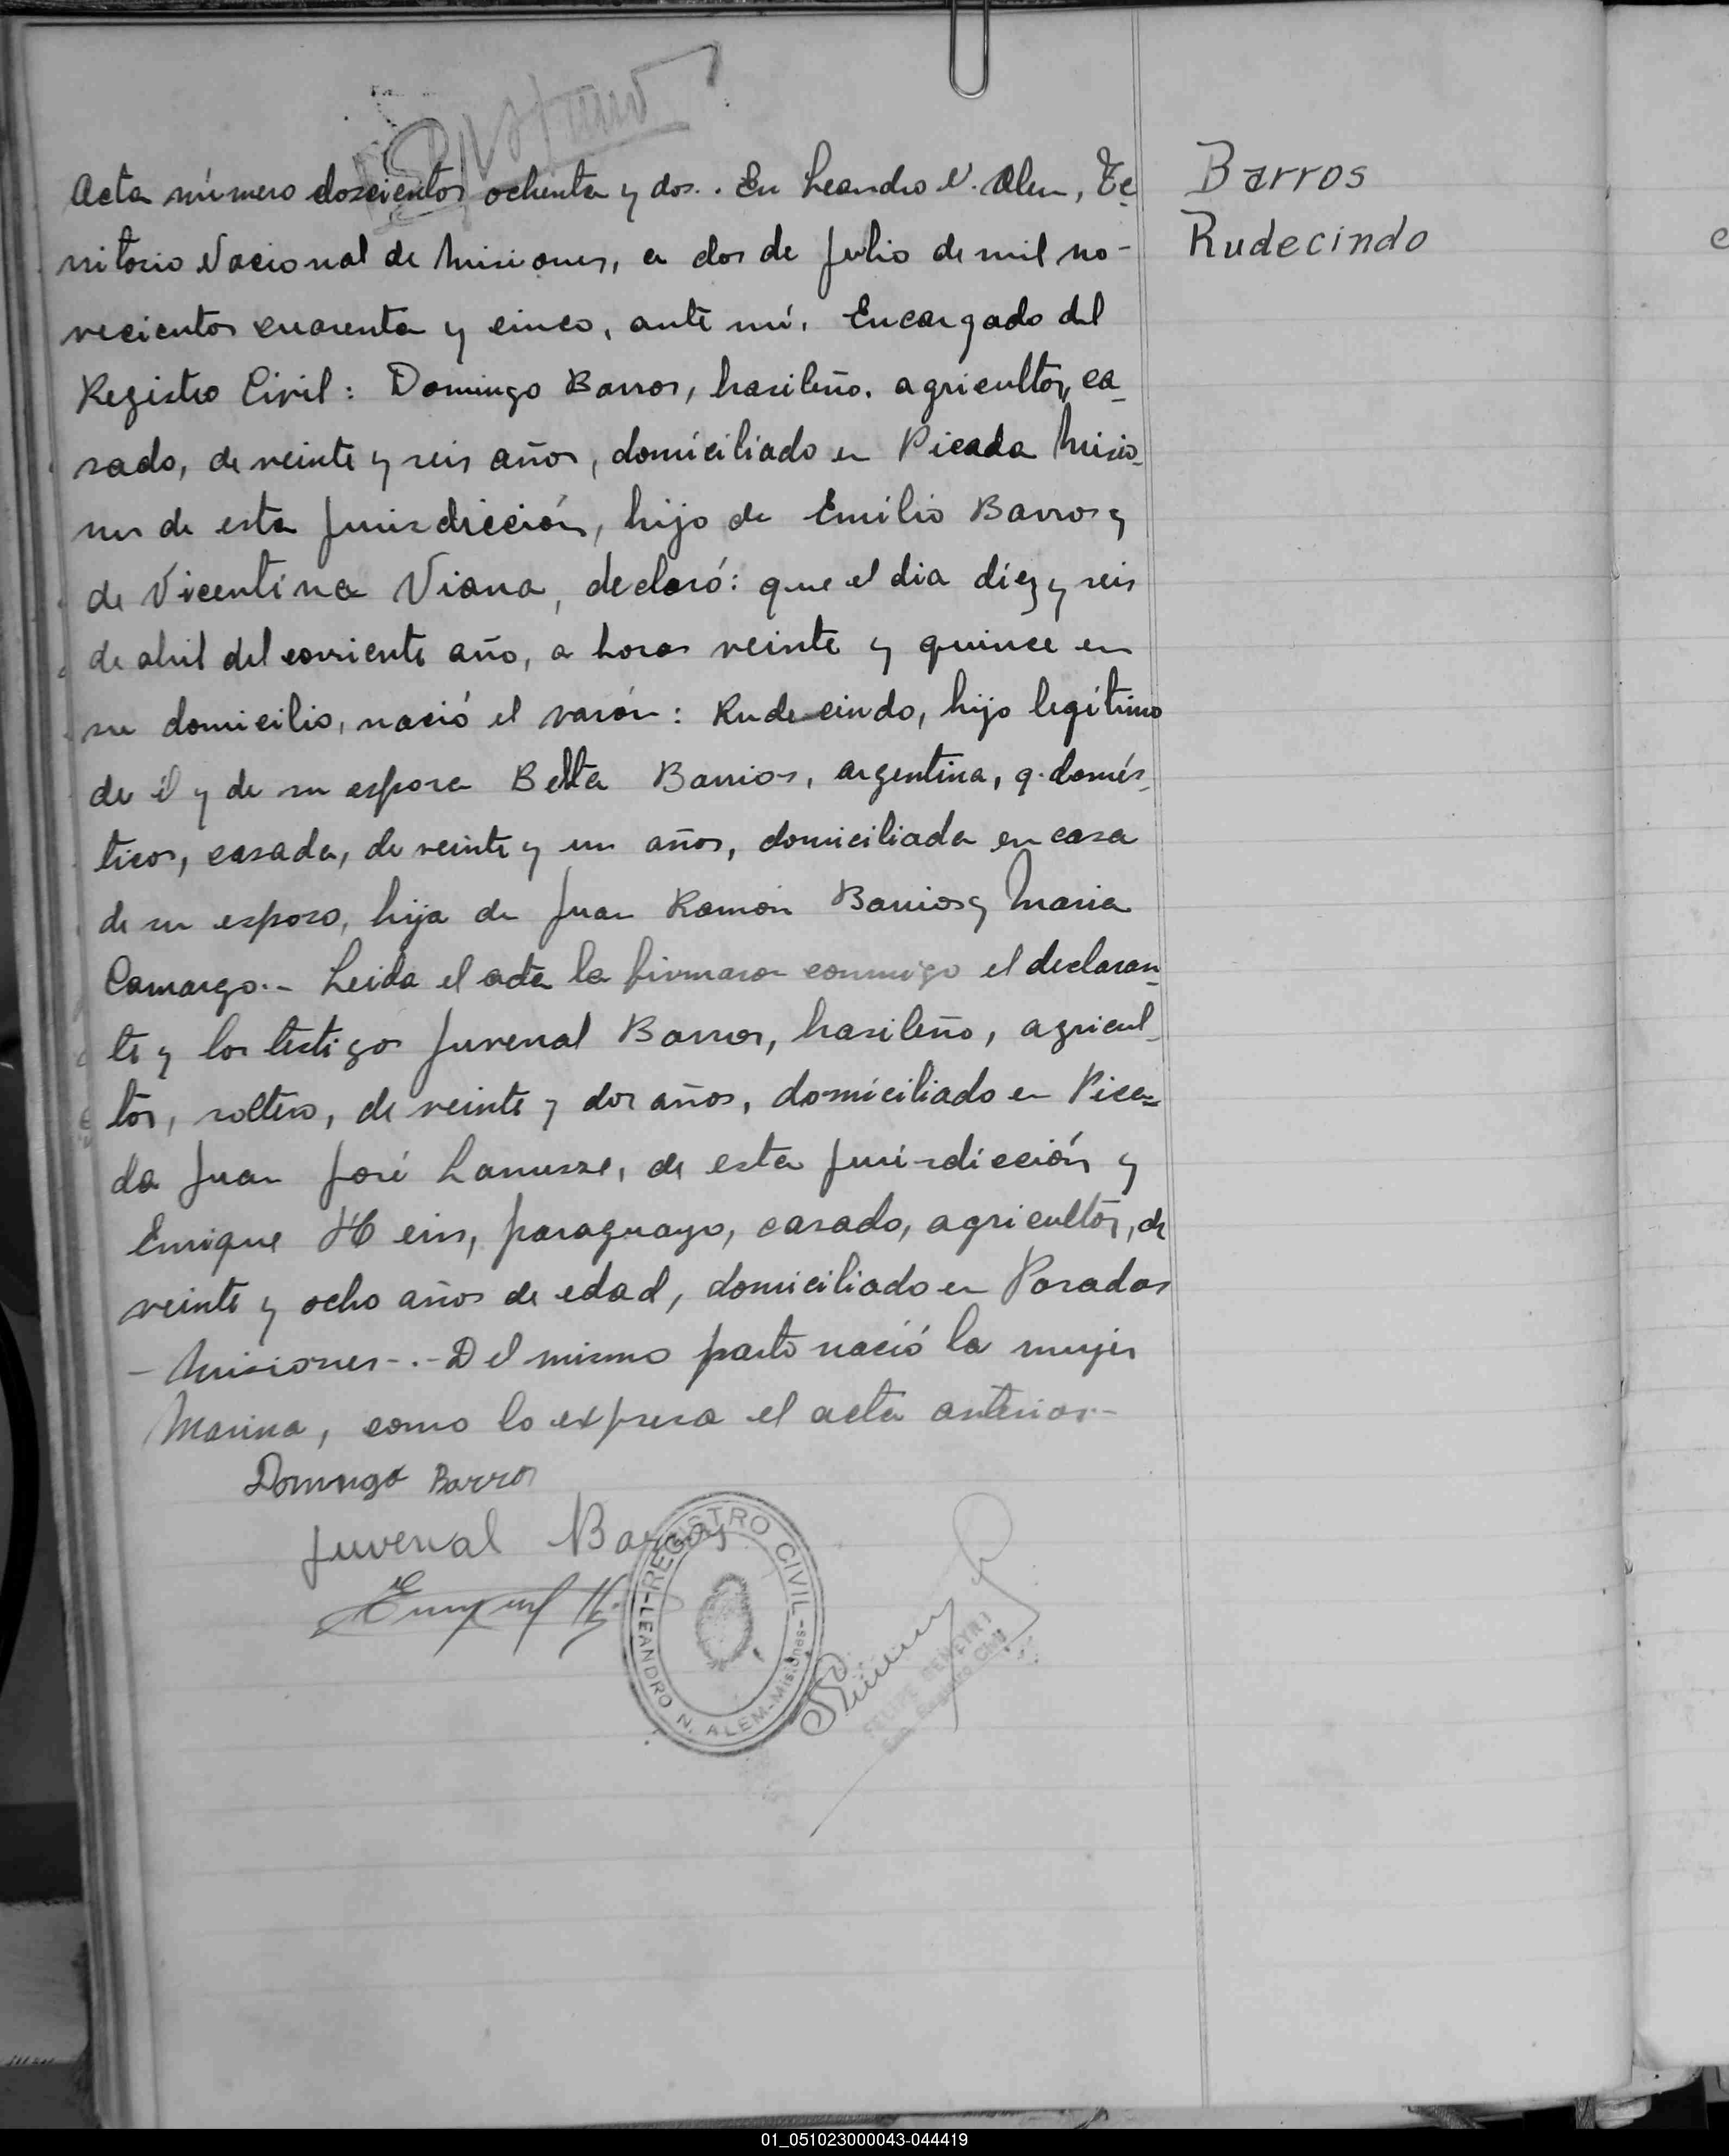 Acta número doscientos ochenta y dos.. En Leandro N. Alem, Te-
rritorio Nacional de Misiones, a dos de Julio de mil no-
vecientos cuarenta y cinco, ante mí, Encargado del
Registro Civil: Domingo Barros, brasileño, agricultor, ca-
sado, de veinte y seis años, domiciliado en Picada Misio-
nes de esta Jurisdicción, hijo de Emilio Barros y
de Vicentina Viana, declaró: que el dia diez y seis
de abril del corriente año, a horas veinte y quince en
su domicilio, nació el varón: Rudecindo, hijo legítimo
de él y de su esposa Barrios, argentina, q. domés-
ticos, casada, de veinte y un años, domiciliada en casa
de su esposo, hija de Juan Ramón Barrios y Maria
Camargo.- Leida el acta la firmaron conmigo el declaran-
te y los testigos Juvenal Barros, brasileño, agricul-
tor, soltero, de veinte y dos años, domiciliado en Pica-
da Juan José Lanusse, de esta Jurisdicción y
Enrique Hein, paraguayo, casado, agricultor, de
veinte y ocho años de edad, domiciliado en Posadas
- Misiones-.- Del mismo parto nació la mujer
Marina, como lo expresa el acta anterior.-
Domingo Barros
Juvenal Barros
REGISTRO CIVIL
LEANDRO N. ALEM-Misiones-
FELIPE
Barros
Rudecindo
01_051023000043-044419